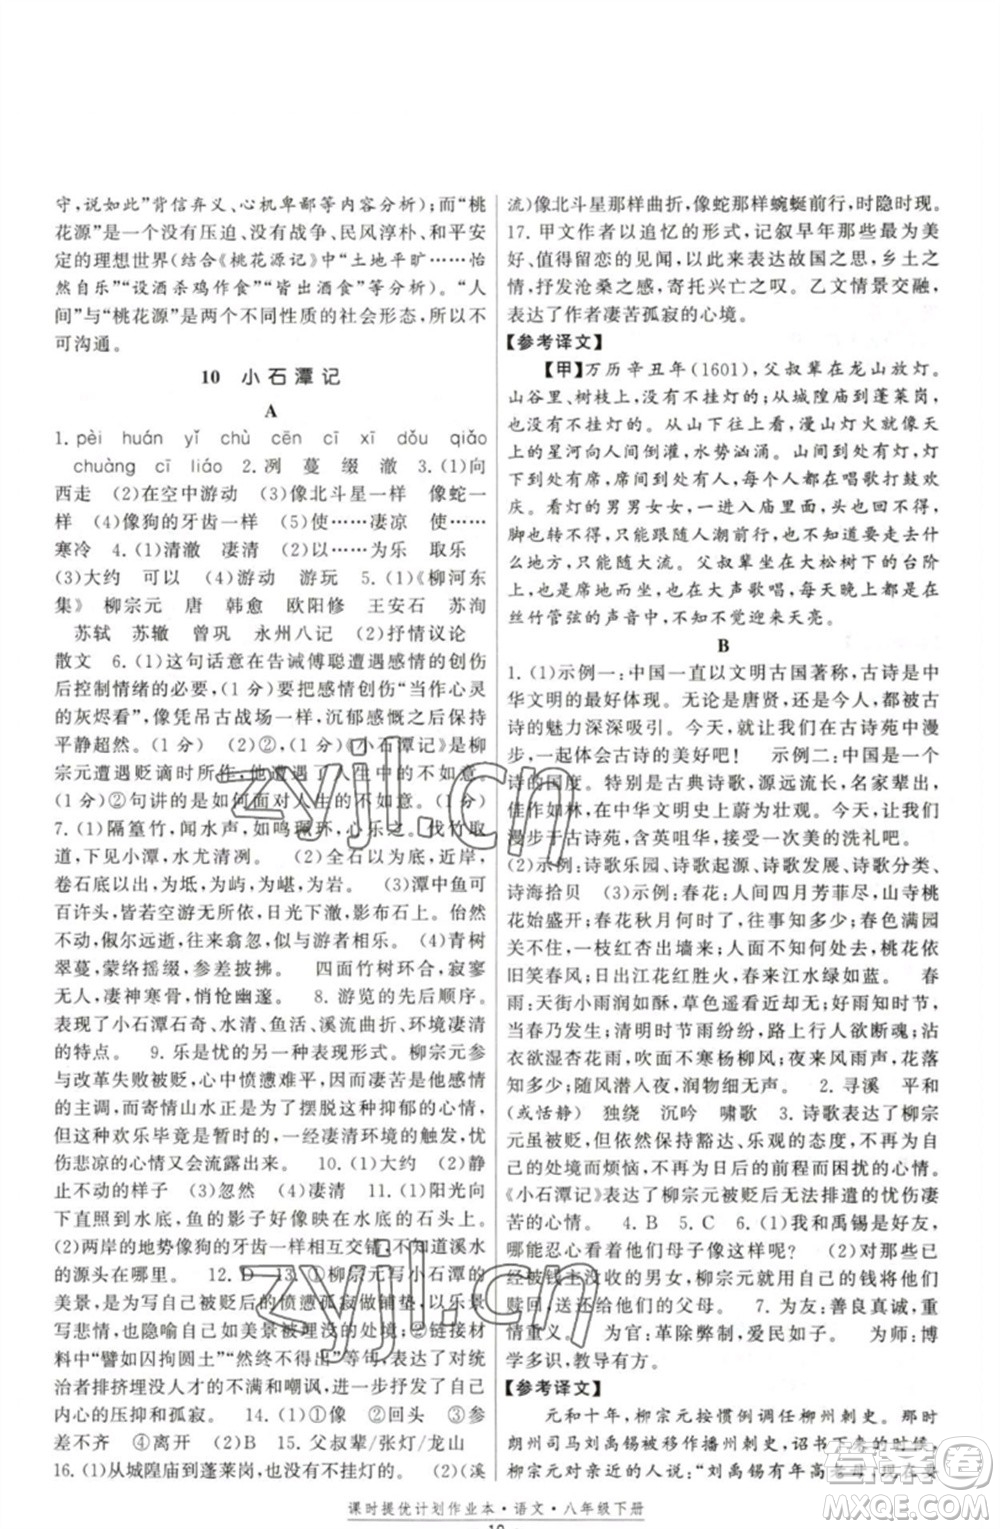 守,说如此”背信弃义、心机卑鄙等内容分析);而“桃
花源”是一个没有压迫、没有战争、民风淳朴、和平安
定的理想世界(结合《桃花源记》中“土地平旷……怡
然自乐”“设酒杀鸡作食”“皆出酒食”等分析)。“人
间”与“桃花源”是两个不同性质的社会形态,所以不
可沟通。
10 小石潭记
A
1. pèi huán yǐ chù cēn cī xī dǒu qiǎo
chuàng cī liáo 2. 冽 蔓 缀 澈 3. (1)向
西走 (2)在空中游动 (3)像北斗星一样 像蛇一
样 (4)像狗的牙齿一样 (5)使……凄凉 使……
寒冷 4. (1)清澈 凄清 (2)以……为乐 取乐
(3)大约 可以 (4)游动 游玩 5. (1)《柳河东
集》 柳宗元 唐 韩愈 欧阳修 王安石 苏洵
苏轼 苏辙 曾巩 永州八记 (2)抒情议论
散文 6. (1)这句话意在告诫傅聪遭遇感情的创伤
后控制情绪的必要,(1分)结合“感情创伤”“当作心灵
的灰烬看”,像凭吊古战场一样,沉郁感情创伤,保持
平静超然。(1分) (2)②,(1分)《小石潭记》是柳
宗元遭遇贬谪时所作,表达的是人生的不如意(1
分)②句讲的是如何面对人生的不如意。(1分)
7. (1)隔篁竹,闻水声,如鸣珮环,心乐之。伐竹取
道,下见小潭,水尤清冽。 (2)全石以为底,近岸,
卷石底以出,为坻,为屿,为嵁,为岩。 (3)潭中鱼可
百许头,皆若空游无所依,日光下澈,影布石上。佁然
不动,俶尔远逝,往来翕忽,似与游者相乐。 (4)青树
翠蔓,蒙络摇缀,参差披拂。 四面竹树环合,寂寥
无人,凄神寒骨,悄怆幽邃。 8. 游览的先后顺序。
表现了小石潭石奇、水清、鱼活、溪流曲折、环境凄清
的特点。 9. 乐是忧的另一种表现形式。柳宗元参
与改革失败被贬,心中愤懑难平,因而凄苦是他感情
的主调,而寄情山水正是为了摆脱这种抑郁的心情,
但这种欢乐毕竟是暂时的,一经凄清环境的触发,忧
伤悲凉的心情又会流露出来。 10. (1)大约 (2)静
止不动的样子 (3)忽然 (4)凄清 11. (1)阳光向
下直照到水底,鱼的影子好像映在水底的石头上。
(2)两岸的地势像狗的牙齿一样互相交错,不知道溪水
的源头在哪里。 12. D 13. ①柳宗元写小石潭的
美景,是为写自己被贬后的愤懑孤寂做铺垫,以乐景
写悲情,也隐喻自己如美景被埋没的处境;②链接材
料中“譬如囚拘圜土”“然终不得出”,表达自己对统
治者排挤埋没人才的不满和嘲讽,具体写出自己被贬
内心的压抑和孤寂。 14. (1)①像 ②回头 ③参
差不齐 ④离开 (2)B 15. 父叔辈/张灯/龙山
16. (1)从城隍庙到蓬莱岗,也没有不挂灯的。 (2)(溪
流)像北斗星那样曲折,像蛇那样蜿蜒前行,时隐时现。
17. 甲文作者以追忆的形式,记叙早年那些为美好、
值得留恋的见闻,以此表达故国之思,乡土之
情,抒发沧桑之感,寄托兴亡之叹。乙文情景交融,
表达了作者凄苦孤寂的心境。
【参考译文】
【甲】万历辛丑年(1601),父叔辈在龙山放灯。
山谷里、树枝上,没有不挂灯的。从城隍庙到蓬莱岗,
也没有不挂灯的。从山下往上看,漫山灯火就像
星河向人间倒灌,水势汹涌。山间到处有灯,灯下到
处坐着人,每个有人的地方都有人在唱歌鼓吹作
欢。看灯的男男女女,一进入庙里,头就不能回,脚
跟就站不得,只能随大流。上上下下,不知要去什么
地方,只能听之任之。父叔辈坐在大松树下的台阶
上,也在席上饮酒,每夜都在大声歌唱,每每在
丝竹管弦的声音中,不知不觉迎来天亮。
B
1. (1)示例一:中国一直以文明古国著称,古诗是中
华文明的灿烂体现。无论是唐贤,还是今人,都被古
诗的魅力深深吸引。今天,就让我们在古诗苑中漫
步,一起体会古诗的美好吧! 示例二:中国是一个
诗的国度。特别是古典诗歌,源远流长,名家辈出,
佳作如林,在中华文明史上蔚为壮观。今天,让我们
漫步于古诗苑,含英咀华,接受一次美的洗礼吧。
(2)示例:诗歌乐园、诗歌起源、诗歌发展、诗歌分类、
诗海拾贝 (3)示例:春花:人间四月芳菲尽,山寺桃
花始盛开;春花秋月何时了,往事知多少;春色满园
关不住,一枝红杏出墙来;人面不知何处去,桃花依
旧笑春风;日出江花红胜火,春来江水绿如蓝。 春
雨:天街小雨润如酥,草色遥看近却无;好雨知时节,
当春乃发生;清明时节雨纷纷,路上行人欲断魂;沾
衣欲湿杏花雨,吹面不寒杨柳风;夜来风雨声,花落
知多少;随风潜入夜,润物细无声。 2. 寻溪 平和
(或恬静) 独绕 沉吟 啸歌 3. 诗歌表达了柳宗
元虽被贬,仍保持豁达、乐观的态度,不再为自
己的处境而烦恼,不再为日后的前程而困扰的心情。
《小石潭记》表达了柳宗元被贬后无法排遣的忧伤凄
苦的心情。 4. B 5. C 6. (1)我和禹锡是好友,
怎么能忍心看到他们母子俩这样呢? (2)对于已
经被钱主没收的男女,柳宗元又自己出的私钱将其
赎回,归还给他们的父母。 7. 为友:善良真诚,重
情重义。 为官:革除弊制,一心为民。 为师:博
学多识,教导有方。
【参考译文】
元和十年,柳宗元按惯例调任柳州刺史。那时
朗州司马刘禹锡被移作播州刺史,诏书下来的时候,
柳宗元对亲近的人说:“刘禹锡有年高老母,现在要
课时提优计划作业本·语文·八年级下册
10
zyjl.cn
zyjl.cn
答案圈
MXQE.COM